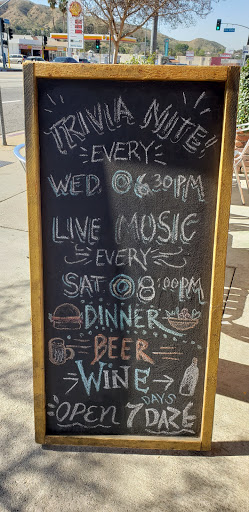 TRIVIA NITE
EVERY
WED. @ 6:30PM
LIVE MUSIC
EVERY
SAT @ 8:00PM
DINNER
BEER
WINE
OPEN 7 DAYS DAZE